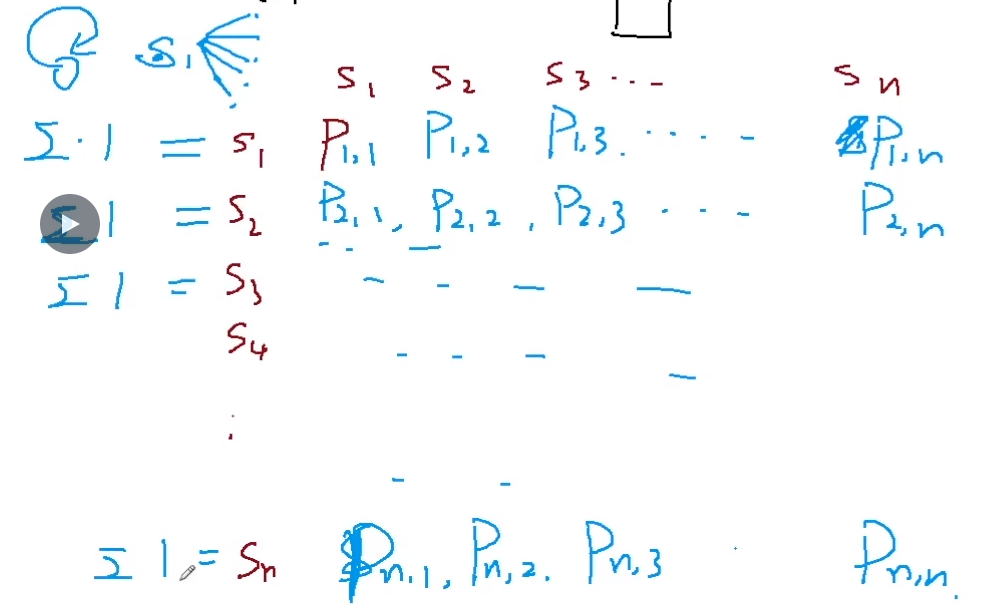 S₁
S₁ S₂ S₃ ... S n
Σ · 1 = S₁ P₁,₁ P₁,₂ P₁,₃. .... P₁,n
Σ 1 = S₂ P₂,₁, P₂,₂, P₂,₃ ... P₂,n
Σ 1 = S₃
S₄
Σ 1 = Sn Pn,1, Pn,2. Pn,3 . Pn,n.